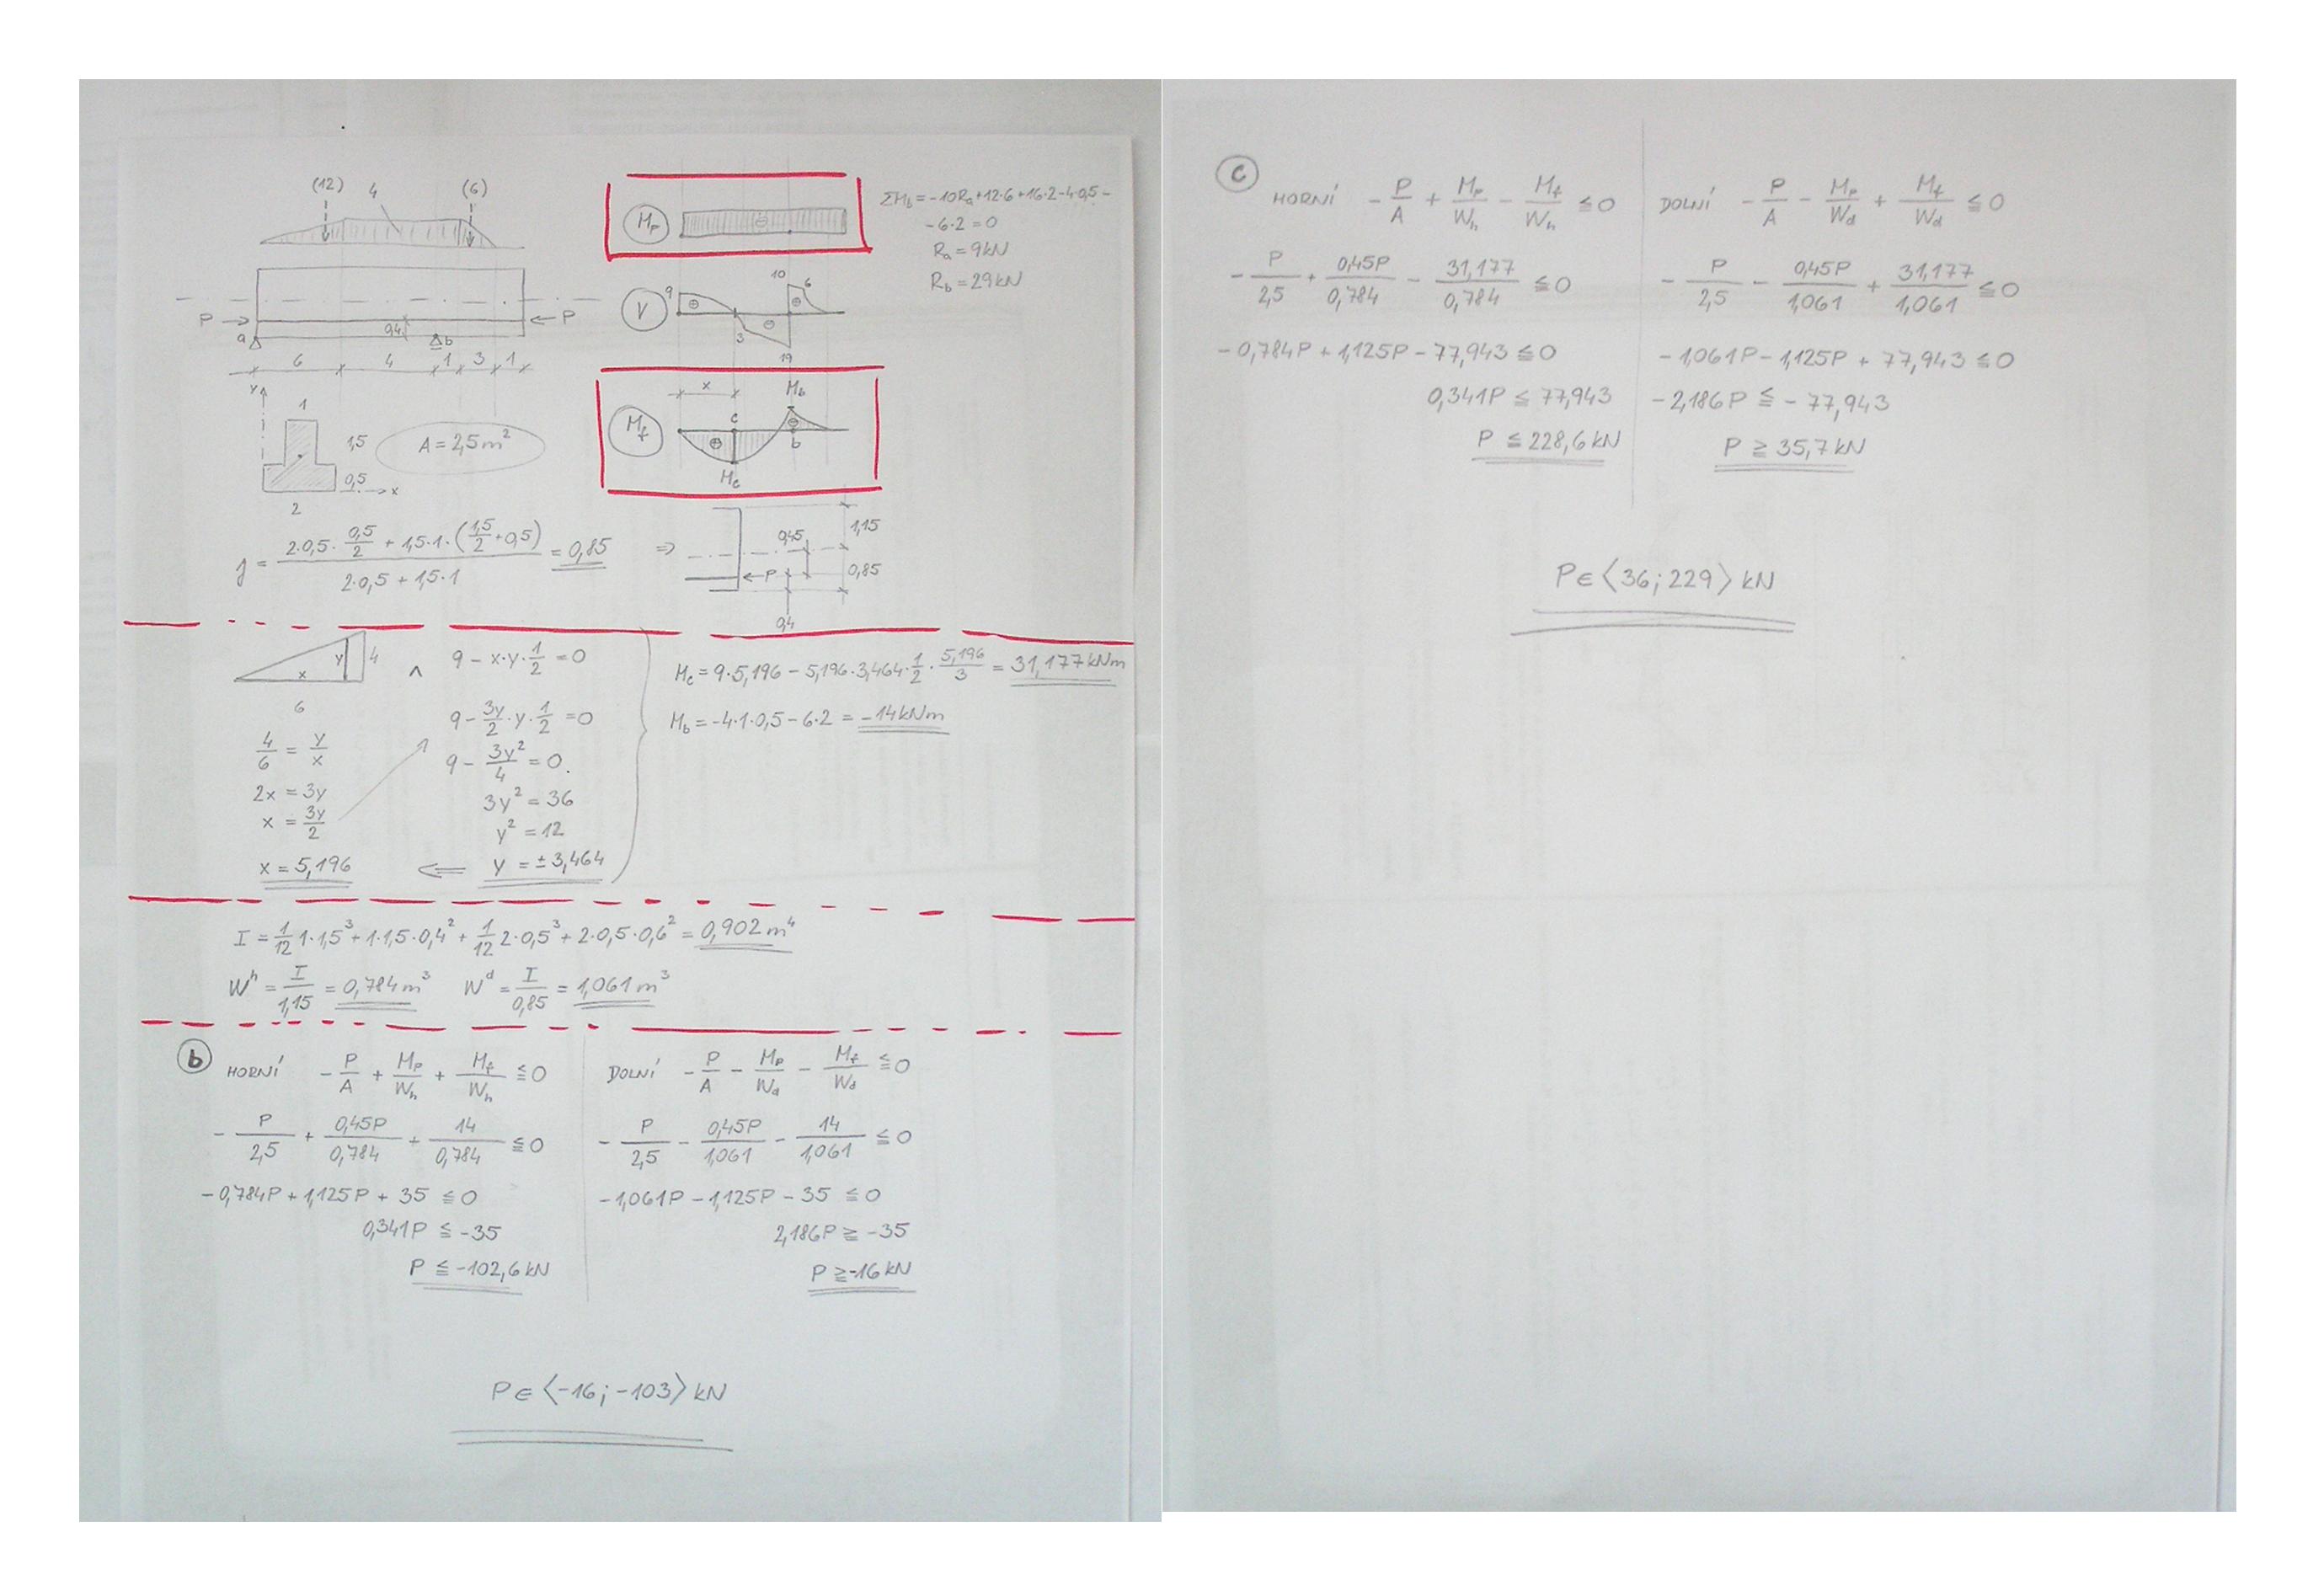 (12) 4 (6)
P P
a 0,4 b
6 4 1 3 1
y
1
1,5
0,5
x
2
A = 2,5 m²
M_P ⊖
V 9 ⊕ 3 ⊖ 19 10 ⊕ 6
x M_b
M_f ⊕ c ⊖ b
M_c
ΣM_b = -10R_a + 12·6 + 16·2 - 4·0,5 -
- 6·2 = 0
R_a = 9kN
R_b = 29kN
y = (2·0,5·0,5/2 + 1,5·1·(1,5/2 + 0,5)) / (2·0,5 + 1,5·1) = 0,85 ⇒
0,45 1,15
P 0,85
0,4
x y 4
6
4/6 = y/x
2x = 3y
x = 3y/2
x = 5,196
∧ 9 - x·y·1/2 = 0
9 - 3y/2·y·1/2 = 0
9 - 3y²/4 = 0
3y² = 36
y² = 12
⇐ y = ±3,464
M_c = 9·5,196 - 5,196·3,464·1/2·5,196/3 = 31,177 kNm
M_b = -4·1·0,5 - 6·2 = -14 kNm
I = 1/12 1·1,5³ + 1·1,5·0,4² + 1/12 2·0,5³ + 2·0,5·0,6² = 0,902 m⁴
W^h = I/1,15 = 0,784 m³ W^d = I/0,85 = 1,061 m³
b HORNÍ -P/A + M_P/W_h + M_f/W_h ≦ 0
-P/2,5 + 0,45P/0,784 + 14/0,784 ≦ 0
-0,784P + 1,125P + 35 ≦ 0
0,341P ≦ -35
P ≦ -102,6 kN
DOLNÍ -P/A - M_P/W_d - M_f/W_d ≦ 0
-P/2,5 - 0,45P/1,061 - 14/1,061 ≦ 0
-1,061P - 1,125P - 35 ≦ 0
2,186P ≧ -35
P ≧ -16 kN
P ∈ ⟨-16; -103⟩ kN
c HORNÍ -P/A + M_P/W_h - M_f/W_h ≦ 0
-P/2,5 + 0,45P/0,784 - 31,177/0,784 ≦ 0
-0,784P + 1,125P - 77,943 ≦ 0
0,341P ≦ 77,943
P ≦ 228,6 kN
DOLNÍ -P/A - M_P/W_d + M_f/W_d ≦ 0
-P/2,5 - 0,45P/1,061 + 31,177/1,061 ≦ 0
-1,061P - 1,125P + 77,943 ≦ 0
-2,186P ≦ -77,943
P ≧ 35,7 kN
P ∈ ⟨36; 229⟩ kN